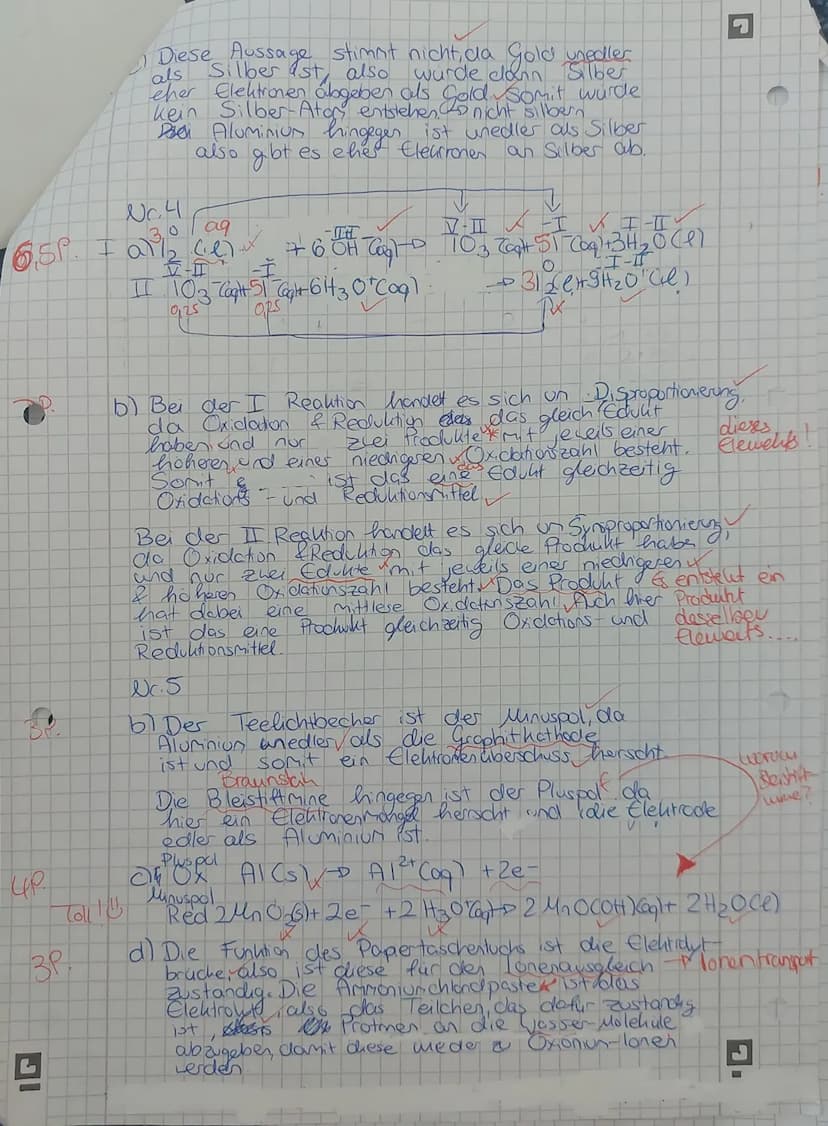 ) Diese Aussage stimmt nicht, da Gold unedler
als Silber ist, also würde dann Silber
eher Elektronen abgeben als Gold. Somit würde
kein Silber-Atom entstehen nicht silbern
Aluminium hingegen ist unedler als Silber
also gibt es eher Elektronen an Silber ab.
Nr. 4
6,5P. I a) I2 (l) + 6 OH- (aq) → IO3- (aq) + 5I- (aq) + 3H2O (l)
3 0 aq -II+I V -II -I I -II
II IO3- (aq) + 5I- (aq) + 6H3O+ (aq) → 3I2 (l) + 9H2O (l)
V -II -I 0 I -II
0,25 0,25
7P. b) Bei der I Reaktion handelt es sich um Disproportionierung,
da Oxidation & Reduktion das gleich Edukt
haben und nur zwei Produkte mit jeweils einer
höheren und eines niedrigeren Oxidationszahl besteht.
dieses Elements!
Somit ist das eine Edukt gleichzeitig
das
Oxidations- und Reduktionsmittel
Bei der II Reaktion handelt es sich um Synproportionierung,
da Oxidation & Reduktion das gleiche Produkt haben
und nur zwei Edukte mit jeweils einer niedrigeren
& höheren Oxidationszahl besteht. Das Produkt
hat dabei eine mittlere Oxidationszahl. Auch hier
ist das eine Produkt gleichzeitig Oxidations- und
Reduktionsmittel.
Es entsteht ein
Produkt
desselben
Elements....
Nr. 5
3P. b) Der Teelichtbecher ist der Minuspol, da
Aluminium unedler als die Graphitkathode
ist und somit ein Elektronenüberschuss herrscht.
Braunstein
Die Bleistiftmine hingegen ist der Pluspol da
hier ein Elektronenmangel herrscht und die Elektrode
edler als Aluminium ist.
worum
Bleistift
mine?
Pluspol
4P. c) Ox Al(s) → Al2+(aq) + 2e-
Minuspol
Toll!
Red 2MnO2(s) + 2e- + 2H3O+(aq) → 2MnO(OH)(aq) + 2H2O(l)
3P. d) Die Funktion des Papertaschentuchs ist die Elektrolyt-
brücke, also ist diese für den Ionenausgleich → Ionentransport
zuständig. Die Ammoniumchloridpaste ist das
Elektrolyt, also das Teilchen, das dafür zuständig
ist, Protonen an die Wasser-Moleküle
abzugeben, damit diese wieder Oxonium-Ionen
werden